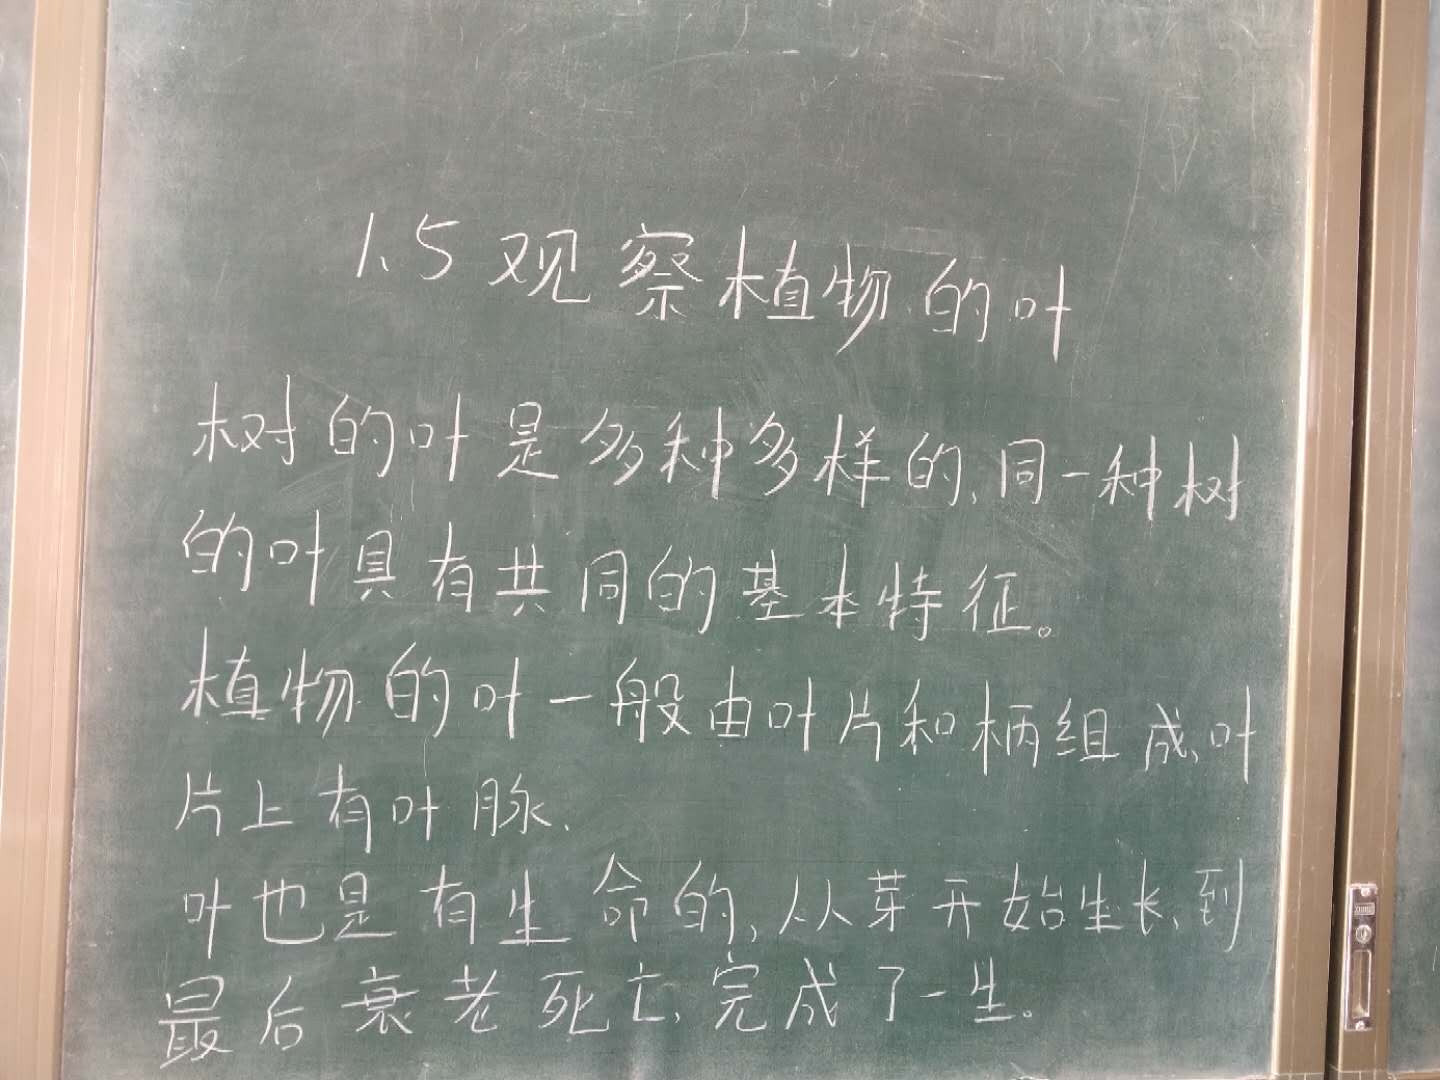 1、5观察植物的叶
树的叶是多种多样的、同一种树
的叶具有共同的基本特征。
植物的叶一般由叶片和柄组成、叶
片上有叶脉、
叶也是有生命的、从芽开始生长、到
最后衰老死亡、完成了一生。